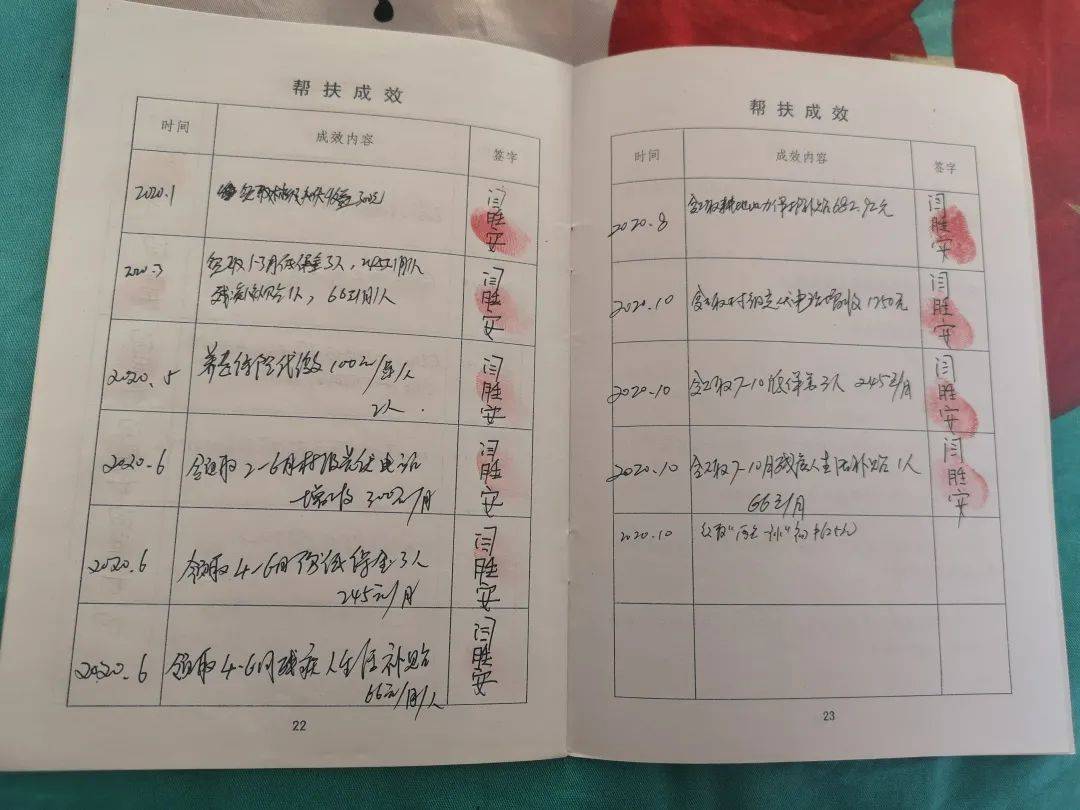 帮扶成效
时间 成效内容 签字
2020.1 300元 闫胜安
2020.3 领取1-3月低保金3人，245元/月/人 闫胜安
残疾补贴1人，66元/月/人
2020.5 养老保险代缴100元/年/人 闫胜安
2人.
2020.6 领取2-6月村级光伏电站 闫胜安
增收300元/月
2020.6 领取4-6月份低保金3人 闫胜安
245元/月
2020.6 领取4-6月残疾人生活补贴 闫胜安
66元/月/人
22
帮扶成效
时间 成效内容 签字
2020.8 领取耕地地力保护补贴682.92元 闫胜安
2020.10 领取村级光伏电站增收1250元 闫胜安
2020.10 领取7-10低保金3人 245元/月 闫胜安
2020.10 领取7-10月残疾人生活补贴1人 闫胜安
66元/月
2020.10
23